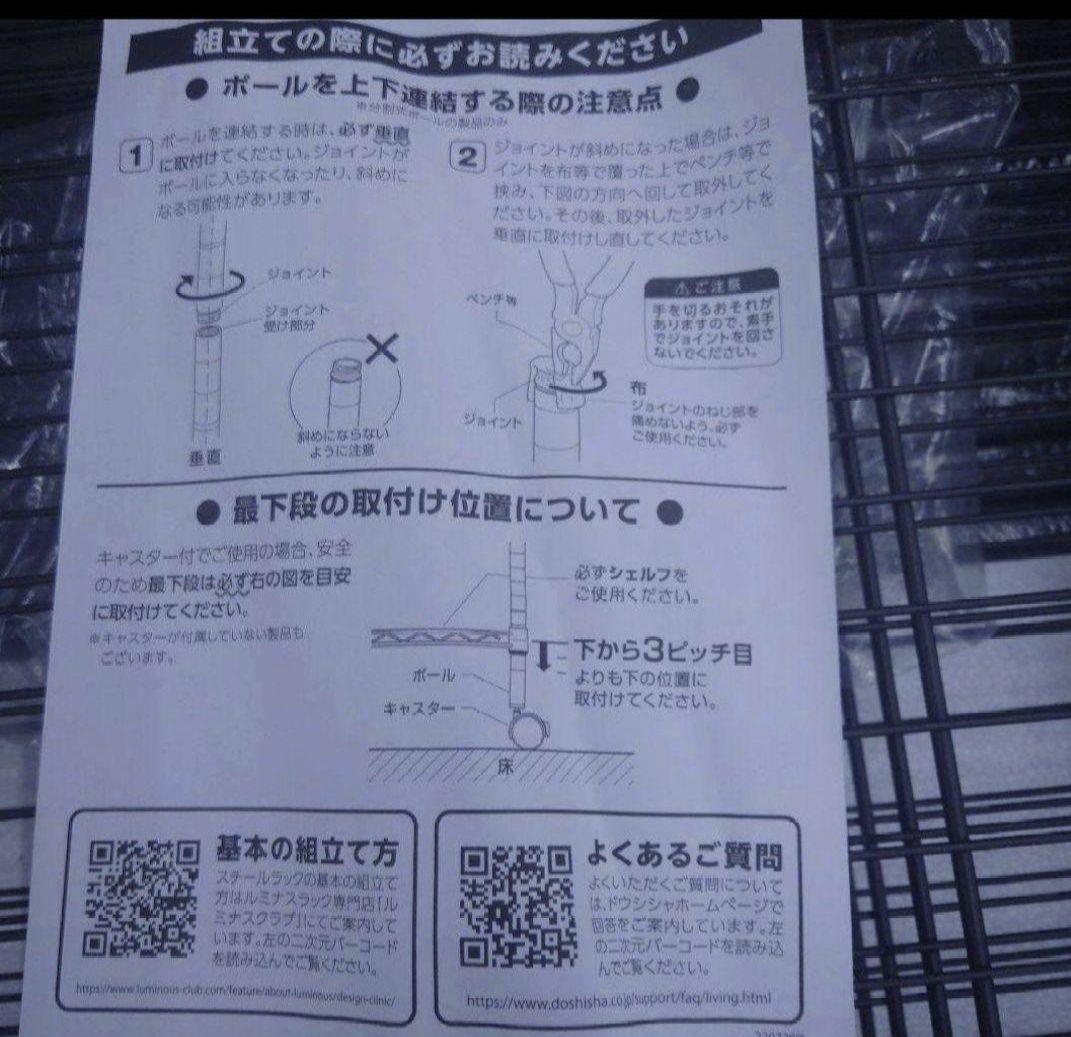 組立ての際に必ずお読みください
● ポールを上下連結する際の注意点 ●
※分割式ポールの製品のみ
1
ポールを連結する時は、必ず垂直
に取付けてください。ジョイントが
ポールに入らなくなったり、斜めに
なる可能性があります。
ジョイント
ジョイント
受け部分
垂直
斜めにならない
ように注意
2
ジョイントが斜めになった場合は、ジョ
イントを布等で覆った上でペンチ等で
挟み、下図の方向へ回して取外してく
ださい。その後、取外したジョイントを
垂直に取付けし直してください。
ペンチ等
ジョイント
⚠ご注意
手を切るおそれが
ありますので、素手
でジョイントを回さ
ないでください。
布
ジョイントのねじ部を
痛めないよう、必ず
ご使用ください。
● 最下段の取付け位置について ●
キャスター付でご使用の場合、安全
のため最下段は必ず右の図を目安
に取付けてください。
※キャスターが付属していない製品も
ございます。
必ずシェルフを
ご使用ください。
下から3ピッチ目
よりも下の位置に
取付けてください。
ポール
キャスター
床
基本の組立て方
スチールラックの基本の組立て
方はルミナスラック専門店「ル
ミナスクラブ」にてご案内して
います。左の二次元バーコード
を読み込んでご覧ください。
https://www.luminous-club.com/feature/about-luminous/design-clinic/
よくあるご質問
よくいただくご質問について
は、ドウシシャホームページで
回答をご案内しています。左
の二次元バーコードを読み込
んでご覧ください。
https://www.doshisha.co.jp/support/faq/living.html